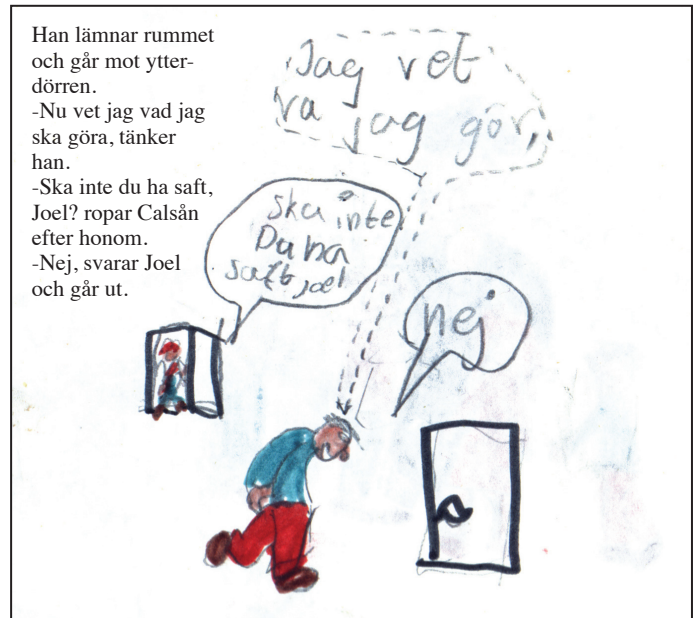 Han lämnar rummet
och går mot ytter-
dörren.
-Nu vet jag vad jag
ska göra, tänker
han.
-Ska inte du ha saft,
Joel? ropar Calsån
efter honom.
-Nej, svarar Joel
och går ut.
Jag vet
va jag gör,
Ska inte
Du ha
saft joel
nej